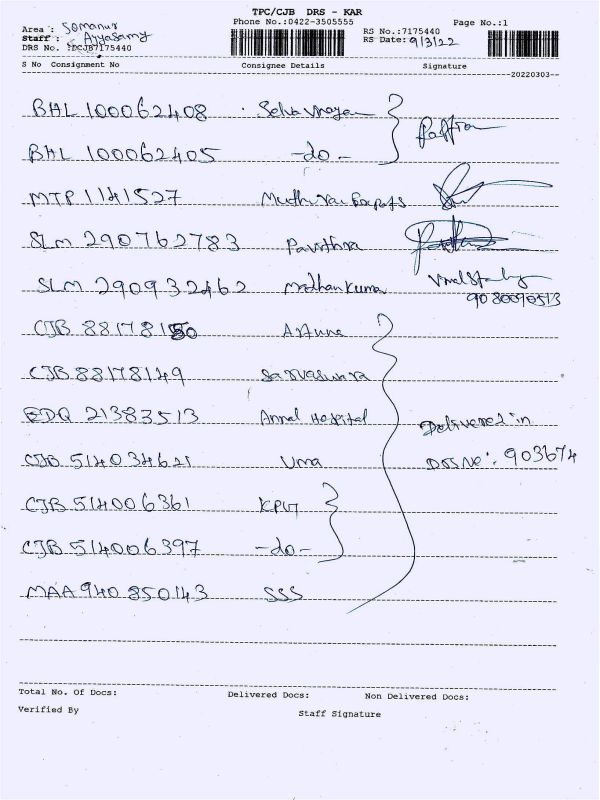 TPC/CJB DRS - KAR
Phone No.:0422-3505555 Page No.:1
Area : Somanur RS No.:7175440
Staff : Ayyasamy RS Date: 9/3/22
DRS No. :DCJB7175440
S No Consignment No Consignee Details Signature
20220303
BHL 100062408
BHL 100062405 -do-
MTP 1141527
SLM 290762783 Pavithra
SLM 290932462 Madhan Kumar
9080090513
CJB 88178150
CJB 88178149
EDQ 21383513 Annai Hospital Delivered in
CJB 514034621 Uma DRS No: 903674
CJB 514006361
CJB 514006397 -do-
MAA 940 850143 SSS
Total No. Of Docs: Delivered Docs: Non Delivered Docs:
Verified By Staff Signature